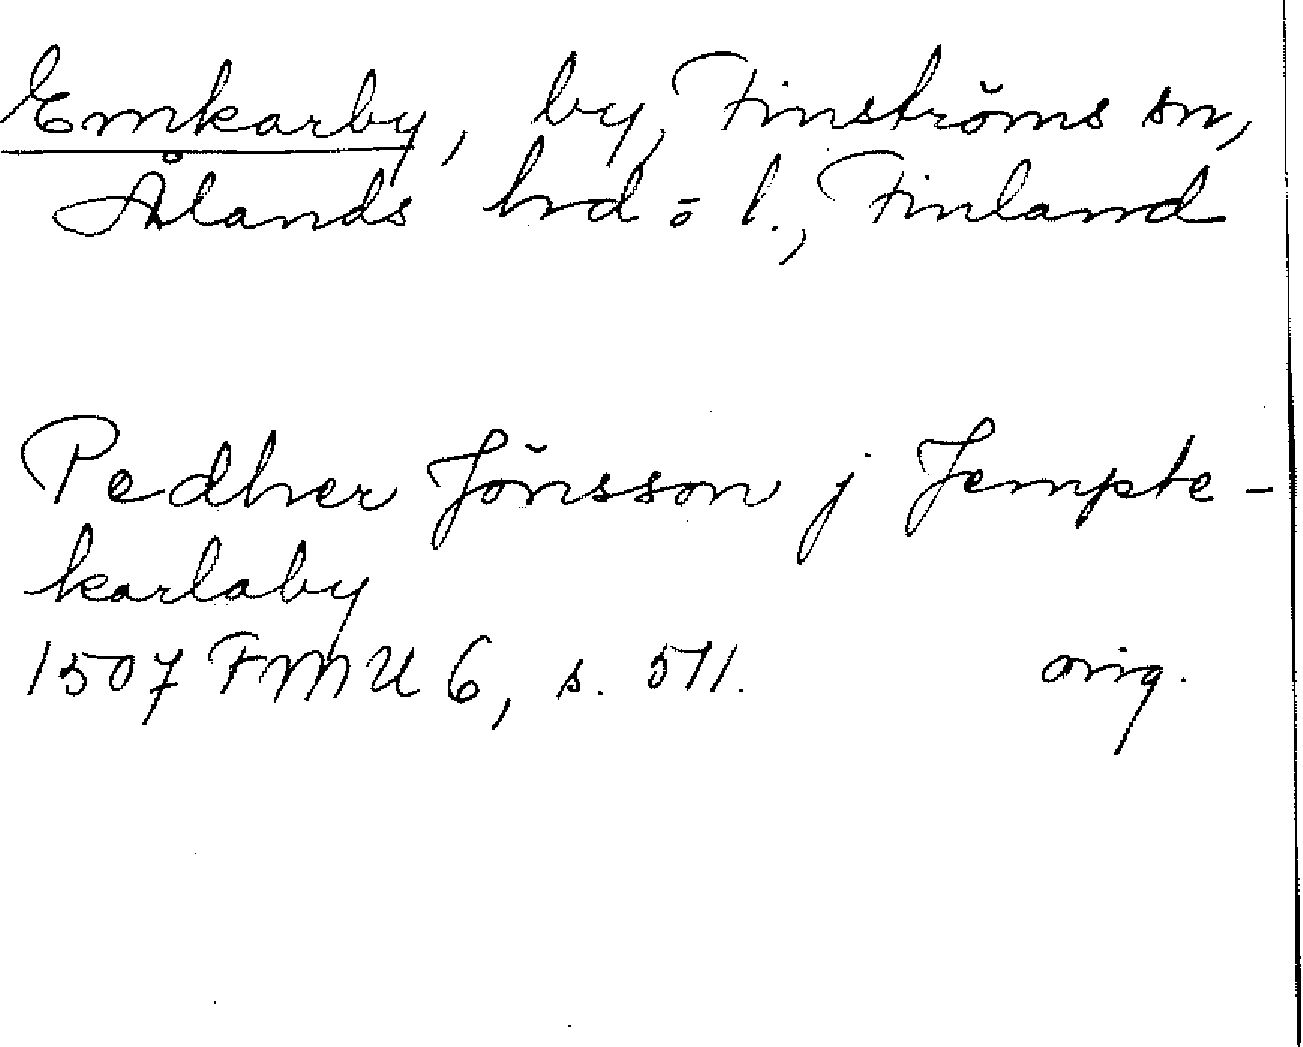 Emkarby, by, Finströms sn,
Ålands hd o l., Finland
Pedher Jönsson j Jempte-
karlaby
1507 FMU 6, s. 511. orig.